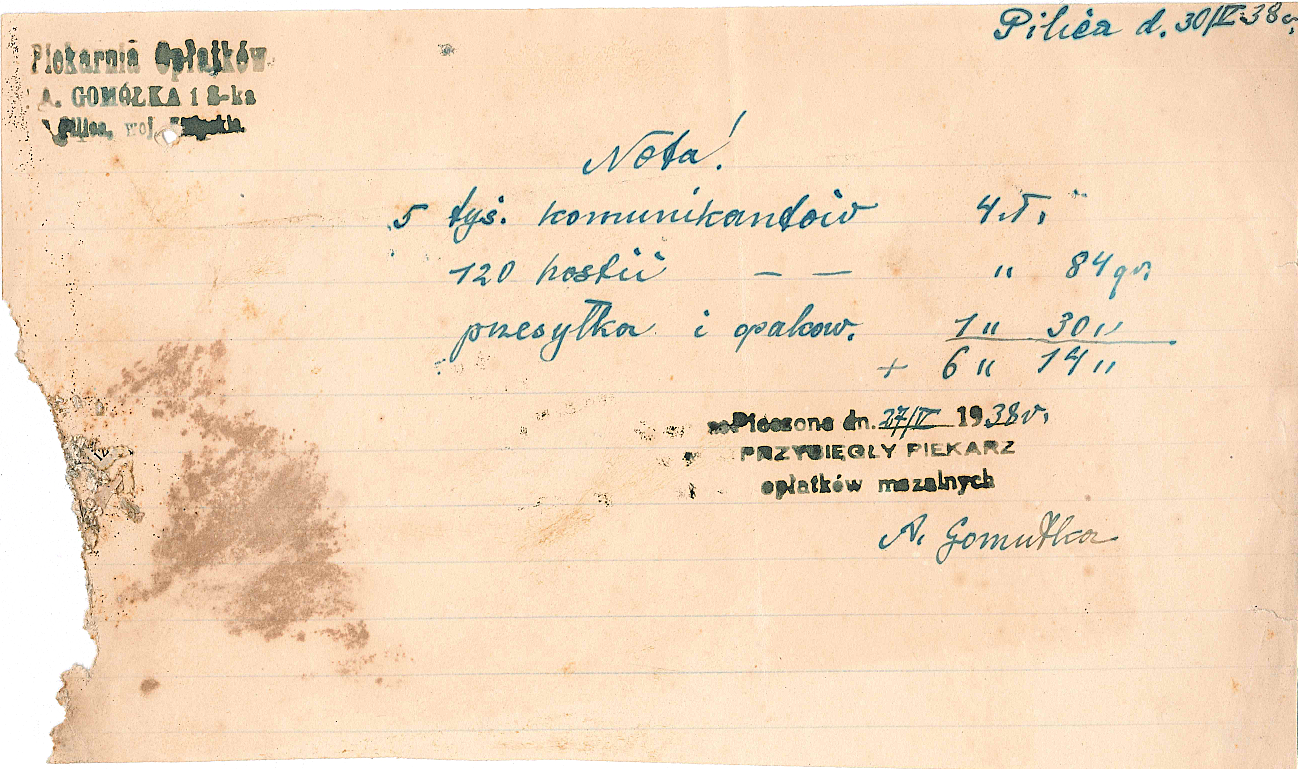 Pilica d. 30/IV 38 r.
Piekarnia Opłatków
A. GOMÓŁKA i S-ka
Pilica, woj.
Nota!
5 tyś. komunikantów 4 zł.
120 hostii — — " 84 gr.
przesyłka i opakow. 1 " 30 "
+ 6 " 14 "
Pieczone dn. 27/IV 1938 r.
PRZYSIĘGŁY PIEKARZ
opłatków mszalnych
A. Gomułka